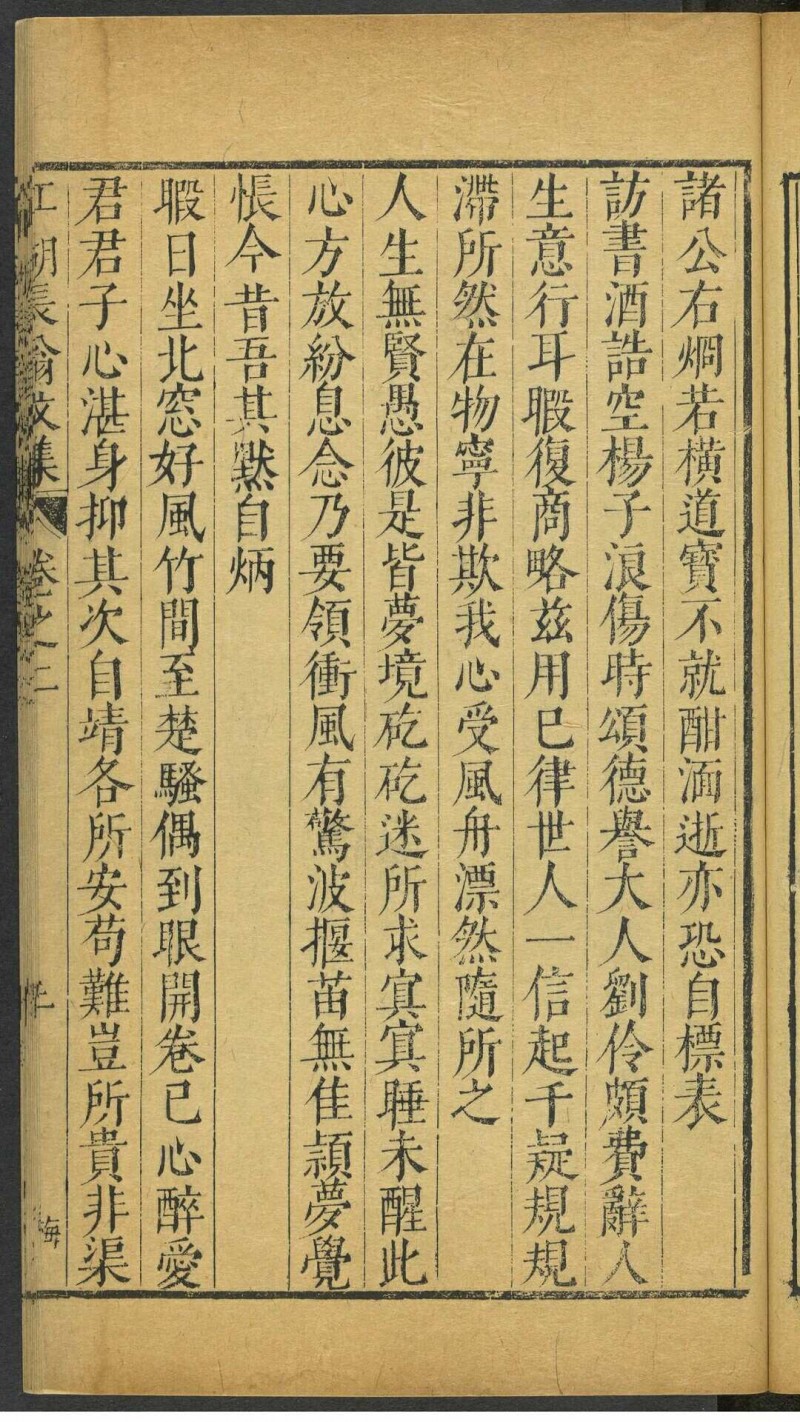 諸公右烱若橫道寶不就酣湎逝亦恐自標表
訪書酒誥空楊子浪傷時頌德譽大人劉伶頗費辭人
生意行耳暇復商略茲用已律世人一信起千疑規規
滯所然在物寧非欺我心受風舟漂然隨所之
人生無賢愚彼是皆夢境矻矻迷所求寘寘睡未醒此
心方放紛息念乃要領衝風有驚波揠苗無佳穎夢覺
悵今昔吾其默自炳
暇日坐北窓好風竹間至楚騷偶到眼開卷已心醉愛
君君子心湛身抑其次自靖各所安苟難豈所貴非渠
江湖長翁文集 卷之二 海